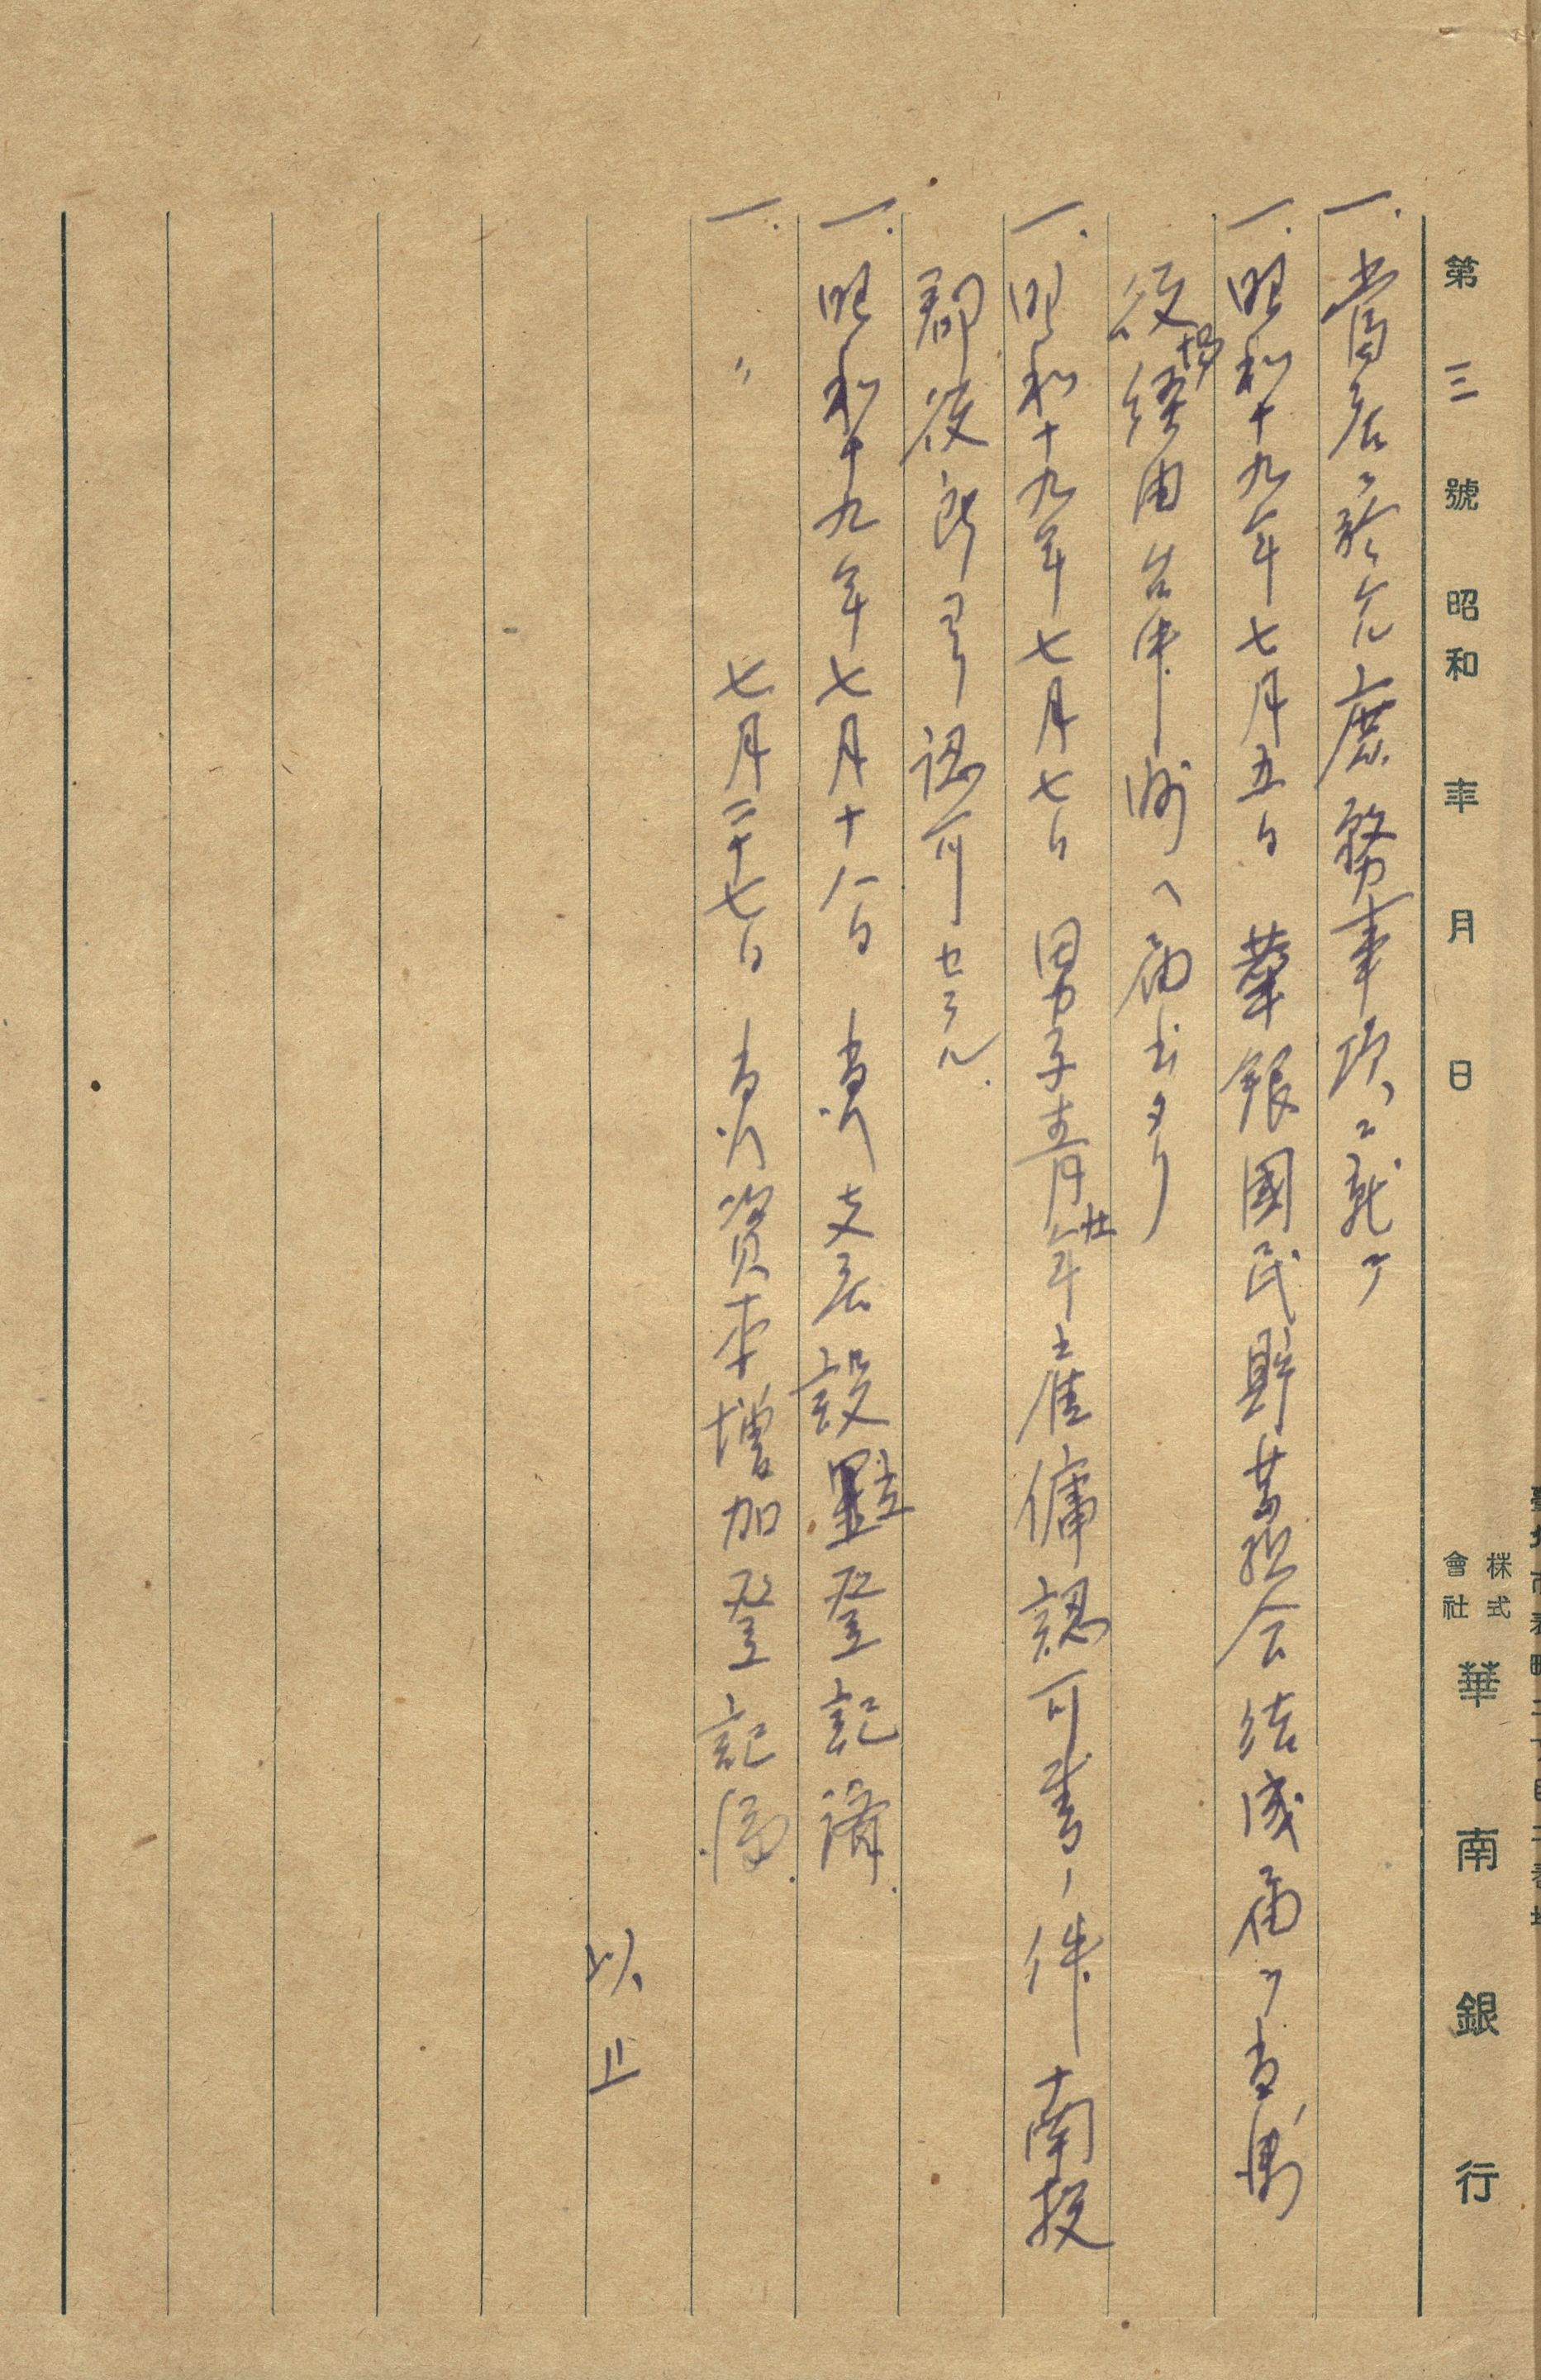 第三號 昭和 年 月 日
株式會社 華南銀行
一. 當店ニ於ケル庶務事項ニ就テ
一. 昭和十九年七月五日 華銀國民貯蓄組合結成届ヲ当街
役場経由台中州ヘ届出タリ
一. 昭和十九年七月七日 男子青壮年雇傭認可書ノ件 南投
郡役所ヨリ認可セラル.
一. 昭和十九年七月十八日 当行支店設置登記済.
一. 〃 七月二十七日 当行資本増加登記済.
以上